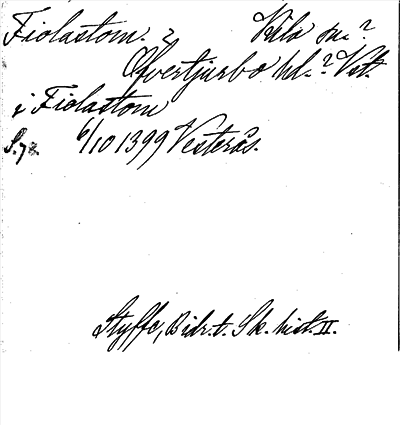 Fiolastom. ? Kila sn.?
Öfvertjurbo hd.? Vst.
i Fiolastom
S. 72. 6/10 1399 Vesterås.
Styffe, Bidr. t. Sk. hist. II.